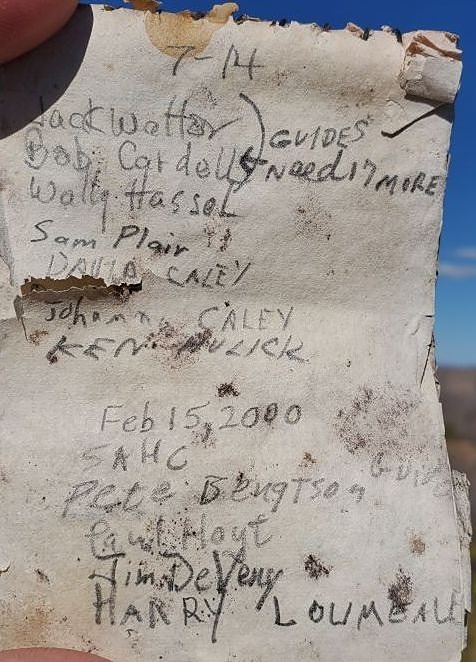 7-14
Jack Watter
Bob Cardell
GUIDES
Need 17 MORE
Wally Hassel
Sam Plair
DAVID CALEY
Johanna CALEY
KEN MULICK
Feb 15, 2000
SAHC
Guide
Pete Bengtson
Paul Hoyt
Jim DeVeny
HARRY